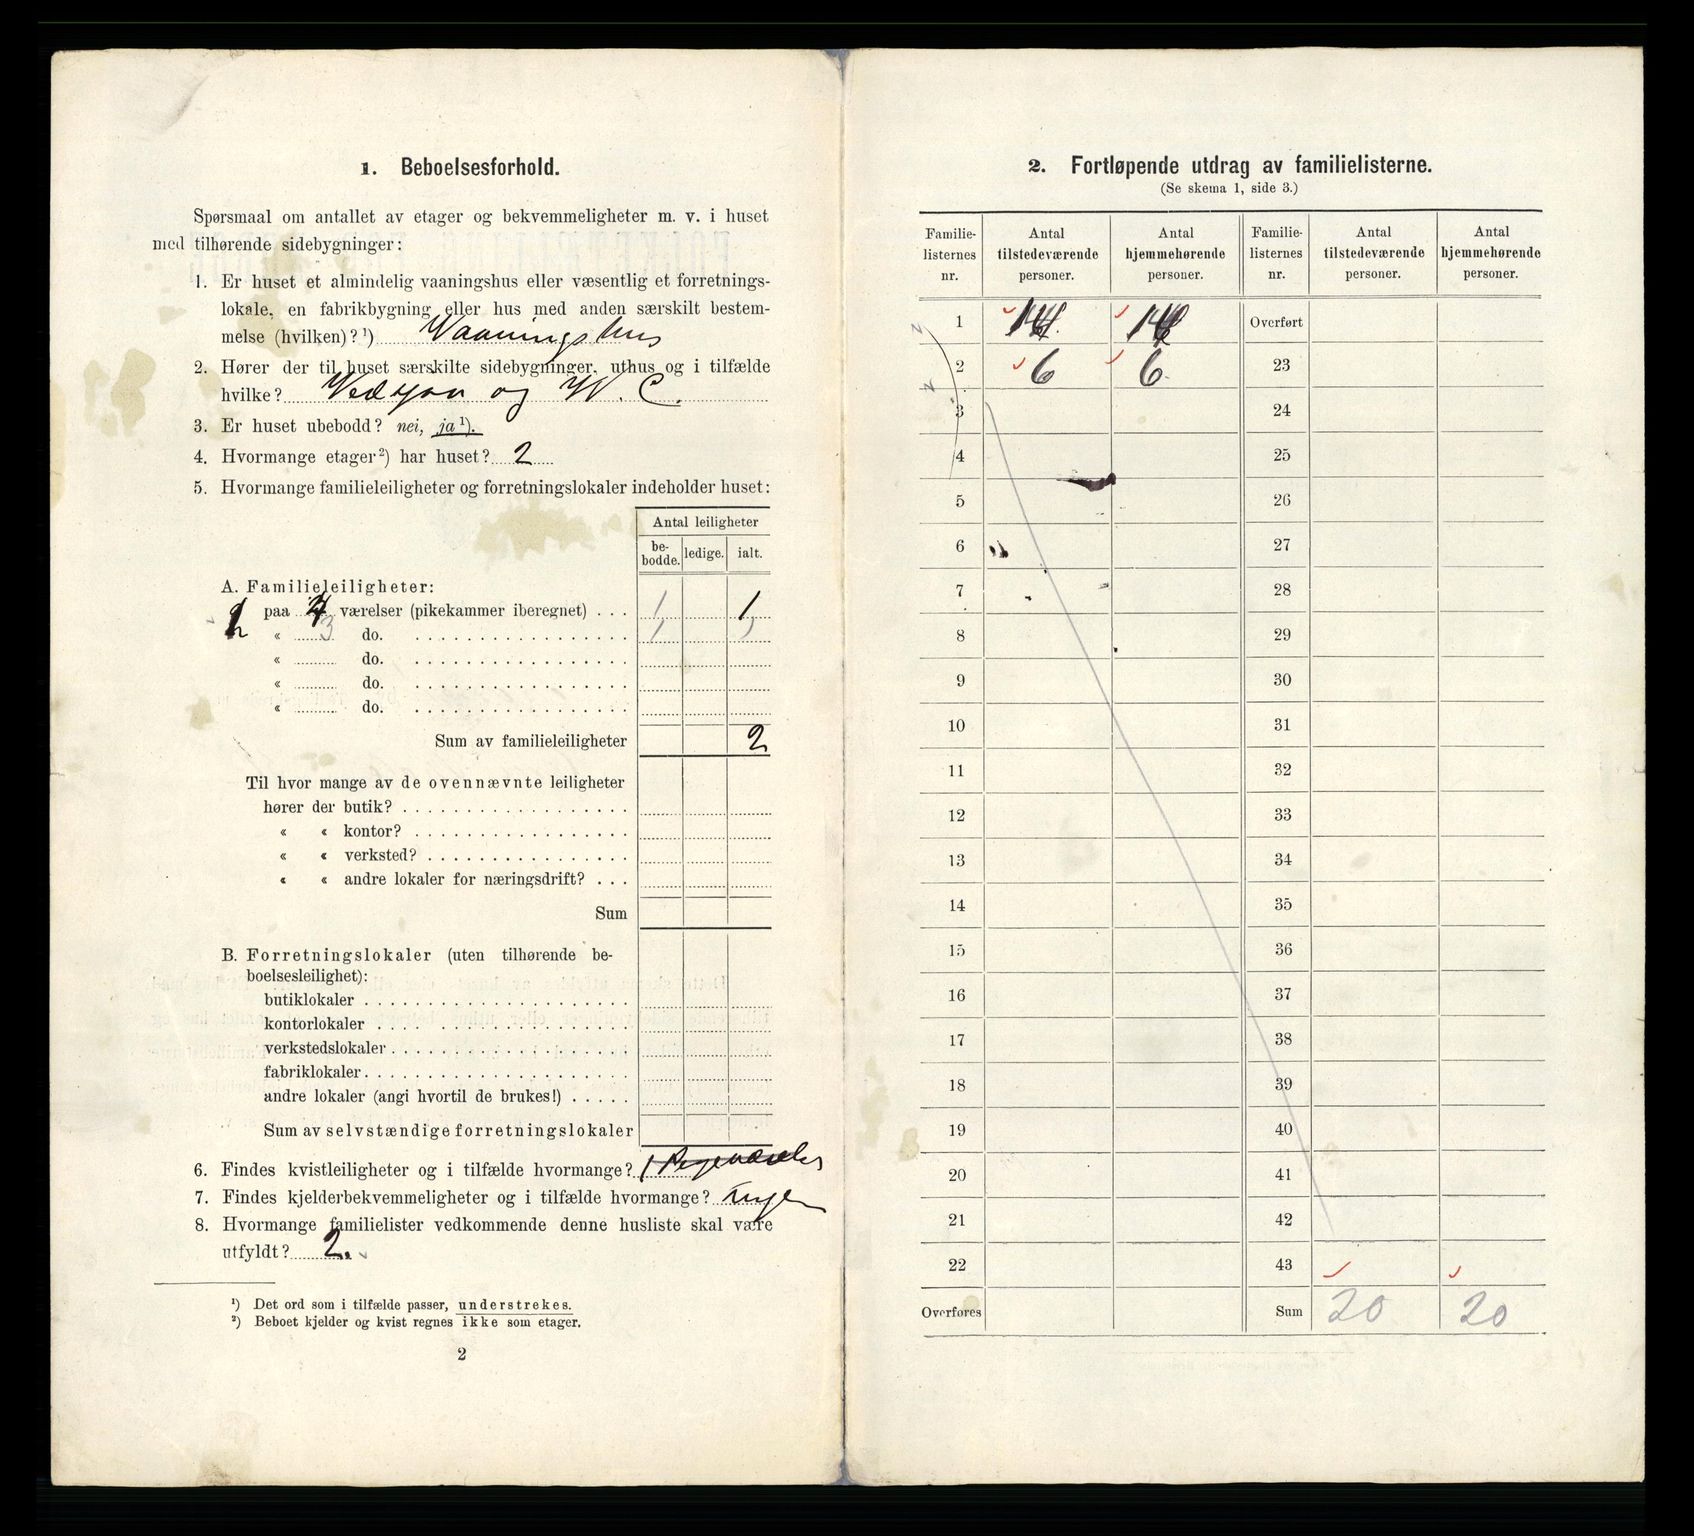 1. Beboelsesforhold.
Spørsmaal om antallet av etager og bekvemmeligheter m. v. i huset
med tilhørende sidebygninger:
1. Er huset et almindelig vaaningshus eller væsentlig et forretnings-
lokale, en fabrikbygning eller hus med anden særskilt bestem-
melse (hvilken)? ¹) Vaaningshus
2. Hører der til huset særskilte sidebygninger, uthus og i tilfælde
hvilke? og W. C.
3. Er huset ubebodd? nei, ja ¹).
4. Hvormange etager ²) har huset? 2
5. Hvormange familieleiligheter og forretningslokaler indeholder huset:
Antal leiligheter
be-
bodde. ledige. ialt.
A. Familieleiligheter:
paa værelser (pikekammer iberegnet) . . . 1 1
« 3 do. . . . . . . . . . . . . . . . . . 1 1
« do. . . . . . . . . . . . . . . . . .
« do. . . . . . . . . . . . . . . . . .
« do. . . . . . . . . . . . . . . . . .
Sum av familieleiligheter 2
Til hvor mange av de ovennævnte leiligheter
hører der butik? . . . . . . . . . . . . . . . . . .
« « kontor? . . . . . . . . . . . . . . . . .
« « verksted? . . . . . . . . . . . . . . . .
« « andre lokaler for næringsdrift? . . .
Sum
B. Forretningslokaler (uten tilhørende be-
boelsesleilighet):
butiklokaler . . . . . . . . . . . . . . . . . . . . .
kontorlokaler . . . . . . . . . . . . . . . . . . .
verkstedslokaler . . . . . . . . . . . . . . . . . . .
fabriklokaler . . . . . . . . . . . . . . . . . . . . .
andre lokaler (angi hvortil de brukes!) . . . . .
Sum av selvstændige forretningslokaler
6. Findes kvistleiligheter og i tilfælde hvormange? 1
7. Findes kjelderbekvemmeligheter og i tilfælde hvormange? Ingen
8. Hvormange familielister vedkommende denne husliste skal være
utfyldt? 2.
¹) Det ord som i tilfælde passer, understrekes.
²) Beboet kjelder og kvist regnes ikke som etager.
2
2. Fortløpende utdrag av familielisterne.
(Se skema 1, side 3.)
Familie-
listernes
nr. Antal
tilstedeværende
personer. Antal
hjemmehørende
personer. Familie-
listernes
nr. Antal
tilstedeværende
personer. Antal
hjemmehørende
personer.
1 14 14 Overført
2 6 6 23
3 24
4 25
5 26
6 27
7 28
8 29
9 30
10 31
11 32
12 33
13 34
14 35
15 36
16 37
17 38
18 39
19 40
20 41
21 42
22 43
Overføres Sum 20 20